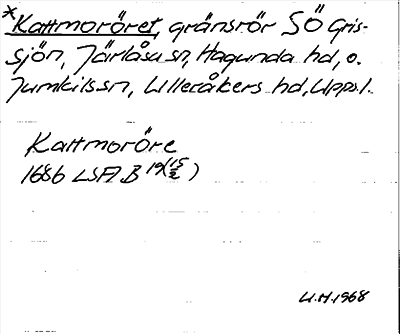 *Kattmoröret, gränsrör SÖ Gris-
sjön, Järlåsa sn, Hagunda hd, o.
Jumkils sn, Ulleråkers hd, Upps. l.
Kattmoröre
1686 LSA B 19(15/2)
U.H. 1968